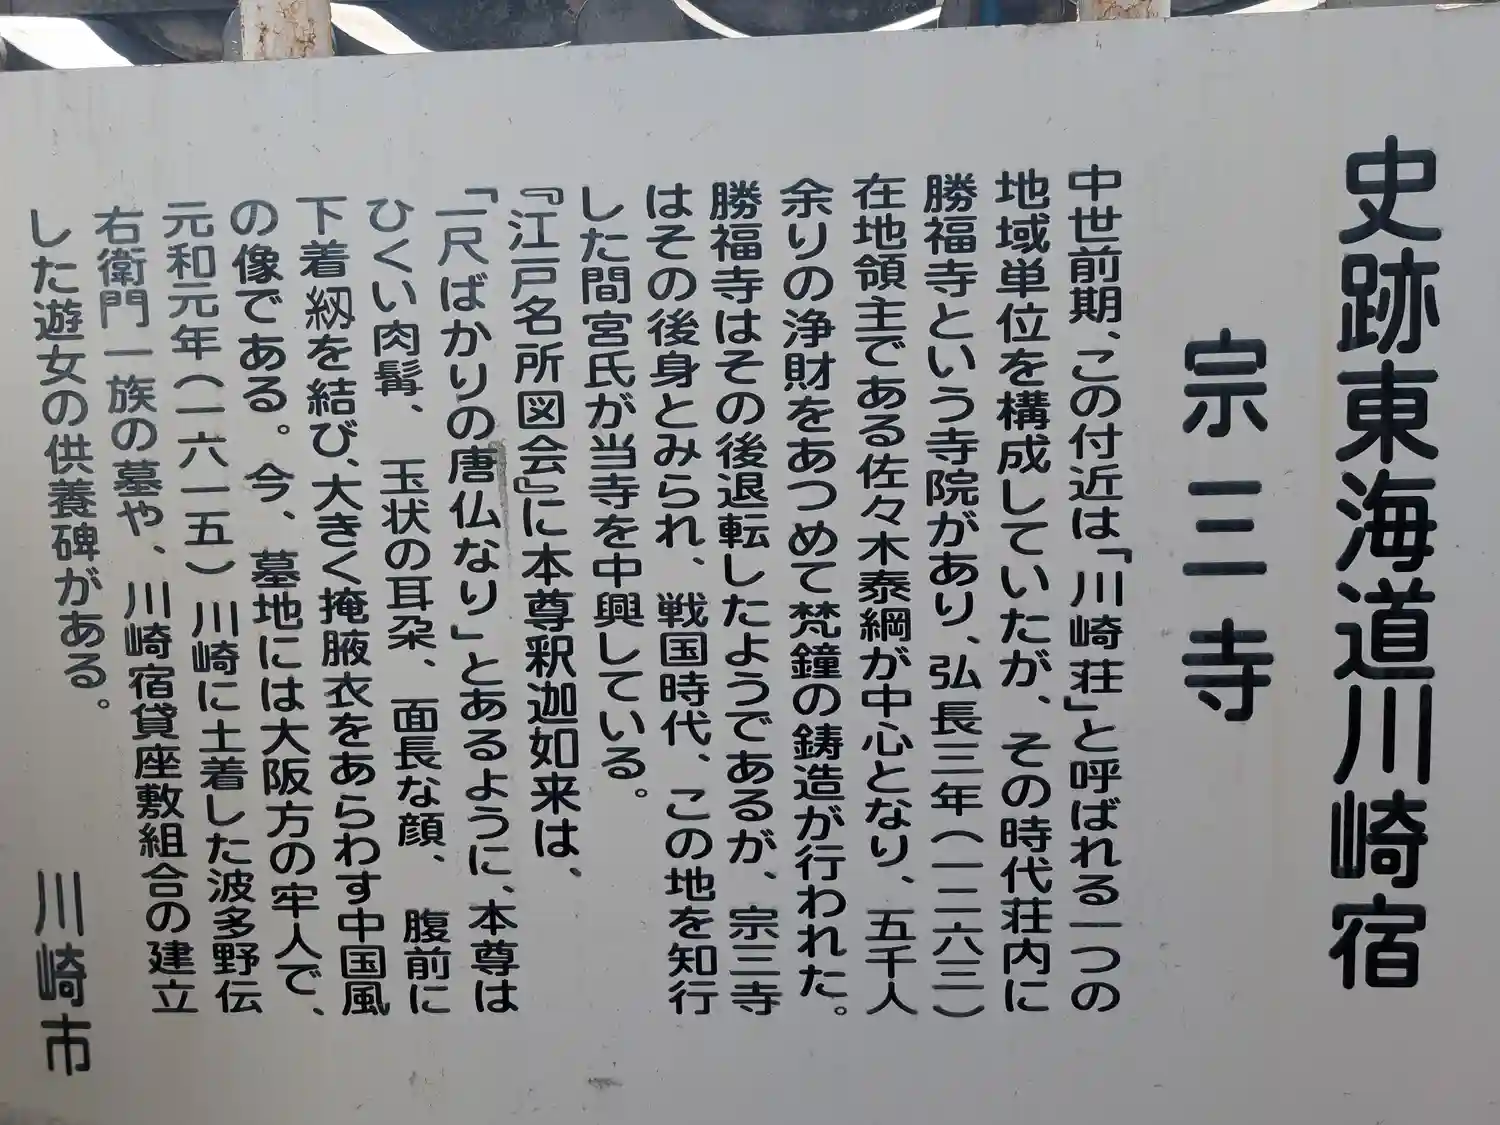 史跡東海道川崎宿
宗三寺
中世前期、この付近は「川崎荘」と呼ばれる一つの
地域単位を構成していたが、その時代荘内に
勝福寺という寺院があり、弘長三年(一二六三)
在地領主である佐々木泰綱が中心となり、五千人
余りの浄財をあつめて梵鐘の鋳造が行われた。
勝福寺はその後退転したようであるが、宗三寺
はその後身とみられ、戦国時代、この地を知行
した間宮氏が当寺を中興している。
『江戸名所図会』に本尊釈迦如来は、
「一尺ばかりの唐仏なり」とあるように、本尊は
ひくい肉髻、玉状の耳朶、面長な顔、腹前に
下着紐を結び、大きく掩腋衣をあらわす中国風
の像である。今、墓地には大阪方の牢人で、
元和元年(一六一五)川崎に土着した波多野伝
右衛門一族の墓や、川崎宿貸座敷組合の建立
した遊女の供養碑がある。
川崎市